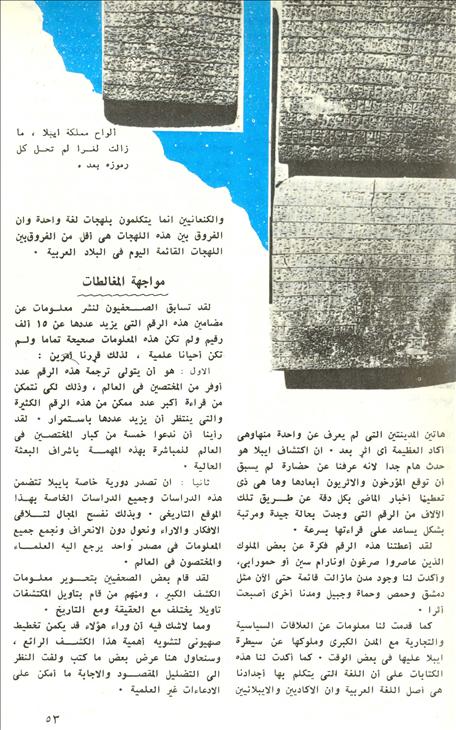 ألواح مملكة ايبلا ، ما
زالت لغزا لم تحل كل
رموزه بعد ٠
هاتين المدينتين التي لم يعرف عن واحدة منهاوهي
أكاد العظيمة أى أثر بعد ٠ ان اكتشاف ايبلا هو
حدث هام جدا لانه عرفنا عن حضارة لم يسبق
أن توقع المؤرخون والاثريون أبعادها وها هى ذى
تعطينا أخبار الماضي بكل دقة عن طريق تلك
الآلاف من الرقم التي وجدت بحالة جيدة ومرتبة
بشكل يساعد على قراءتها بسرعة ٠
لقد أعطتنا هذه الرقم فكرة عن بعض الملوك
الذين عاصروا صرغون اونارام سين أو حمورابى،
وأكدت لنا وجود مدن مازالت قائمة حتى الآن مثل
دمشق وحمص وحماة وجبيل ومدنا أخرى أصبحت
أثرا ٠
كما قدمت لنا معلومات عن العلاقات السياسية
والتجارية مع المدن الكبرى وملوكها عن سيطرة
ايبلا عليها في بعض الوقت ٠ كما أكدت لنا هذه
الكتابات على أن اللغة التي يتكلم بها أجدادنا
هى أصل اللغة العربية وان الاكاديين والايبلانيين
والكنعانيين انما يتكلمون بلهجات لغة واحدة وان
الفروق بين هذه اللهجات هى أقل من الفروق بين
اللهجات القائمة اليوم في البلاد العربية ٠
مواجهة المغالطات
لقد تسابق الصحفيون لنشر معلومات عن
مضامين هذه الرقم التي يزيد عددها عن ١٥ ألف
رقيم ولم تكن هذه المعلومات صحيحة تماما ولم
تكن أحيانا علمية ، لذلك قررنا أمرين :
الاول : هو أن يتولى ترجمة هذه الرقم عدد
أوفر من المختصين في العالم ، وذلك لكي نتمكن
من قراءة أكبر عدد ممكن من هذه الرقم الكثيرة
والتي ينتظر أن يزيد عددها باستمرار ٠ لقد
رأينا أن ندعوا خمسة من كبار المختصين في
العالم للمباشرة بهذه المهمة باشراف البعثة
الحالية ٠
ثانيا : ان تصدر دورية خاصة بايبلا تتضمن
هذه الدراسات وجميع الدراسات الخاصة بهذا
الموقع التاريخي ٠ وبذلك نفسح المجال لتلاقي
الافكار والاراء ونحول دون الانحراف ونجمع جميع
المعلومات في مصدر واحد يرجع اليه العلماء
والمختصون في العالم ٠
لقد قام بعض الصحفيين بتحوير معلومات
الكشف الكبير ، ومنهم من قام بتأويل المكتشفات
تأويلا يختلف مع الحقيقة ومع التاريخ ٠
ومما لاشك فيه أن وراء هؤلاء قد يكمن تخطيط
صهيوني لتشويه أهمية هذا الكشف الرائع ،
وسنحاول هنا عرض بعض ما كتب ولفت النظر
الى التضليل المقصود والاجابة ما أمكن على
الادعاءات غير العلمية ٠
٥٣